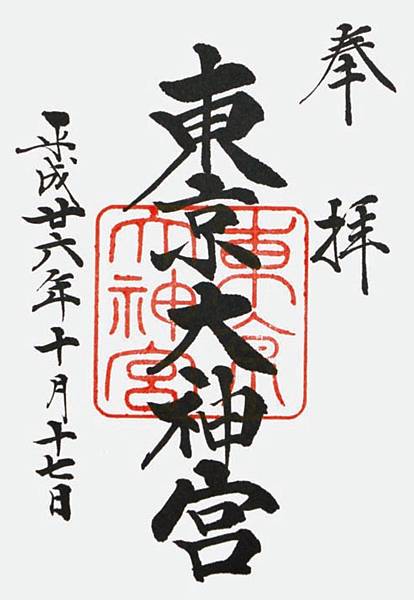 奉拝
東京大神宮
東京大神宮
平成廿六年十月十七日